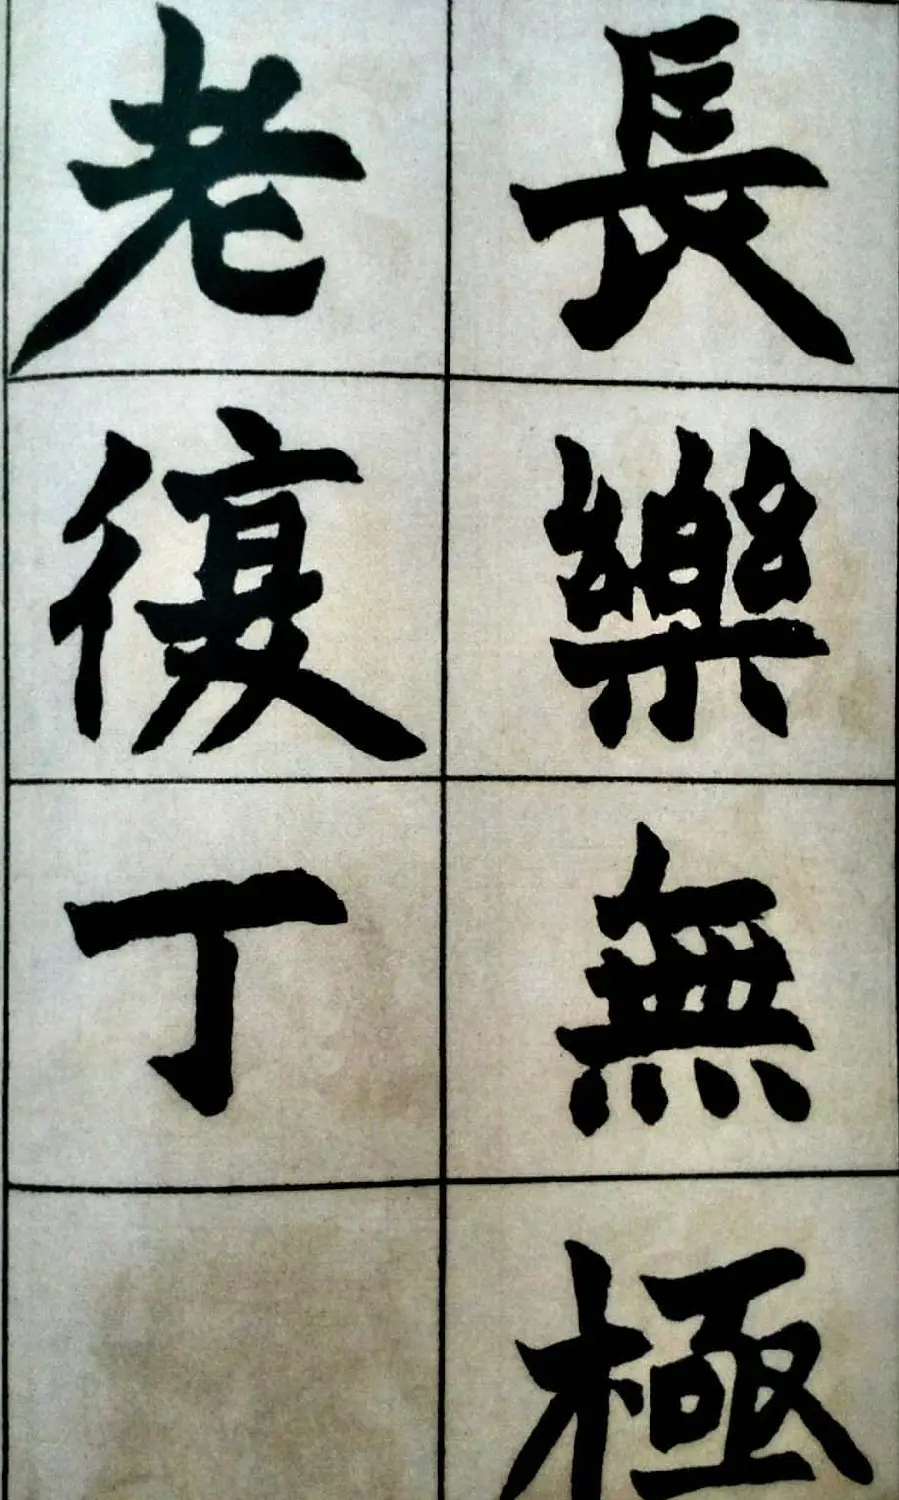 長樂無極
老復丁